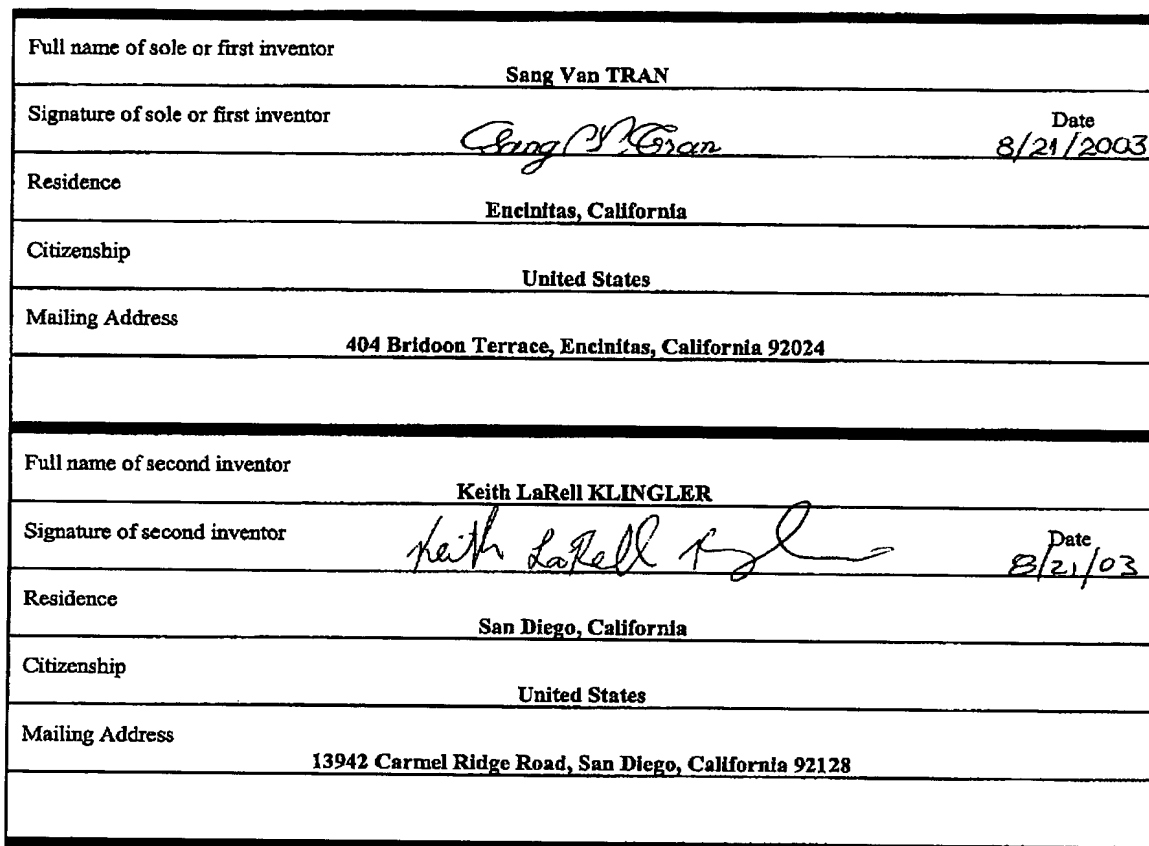 Full name of sole or first inventor
Sang Van TRAN
Signature of sole or first inventor
Sang V. Tran
Date
8/21/2003
Residence
Encinitas, California
Citizenship
United States
Mailing Address
404 Bridoon Terrace, Encinitas, California 92024
Full name of second inventor
Keith LaRell KLINGLER
Signature of second inventor
Keith LaRell
Date
8/21/03
Residence
San Diego, California
Citizenship
United States
Mailing Address
13942 Carmel Ridge Road, San Diego, California 92128